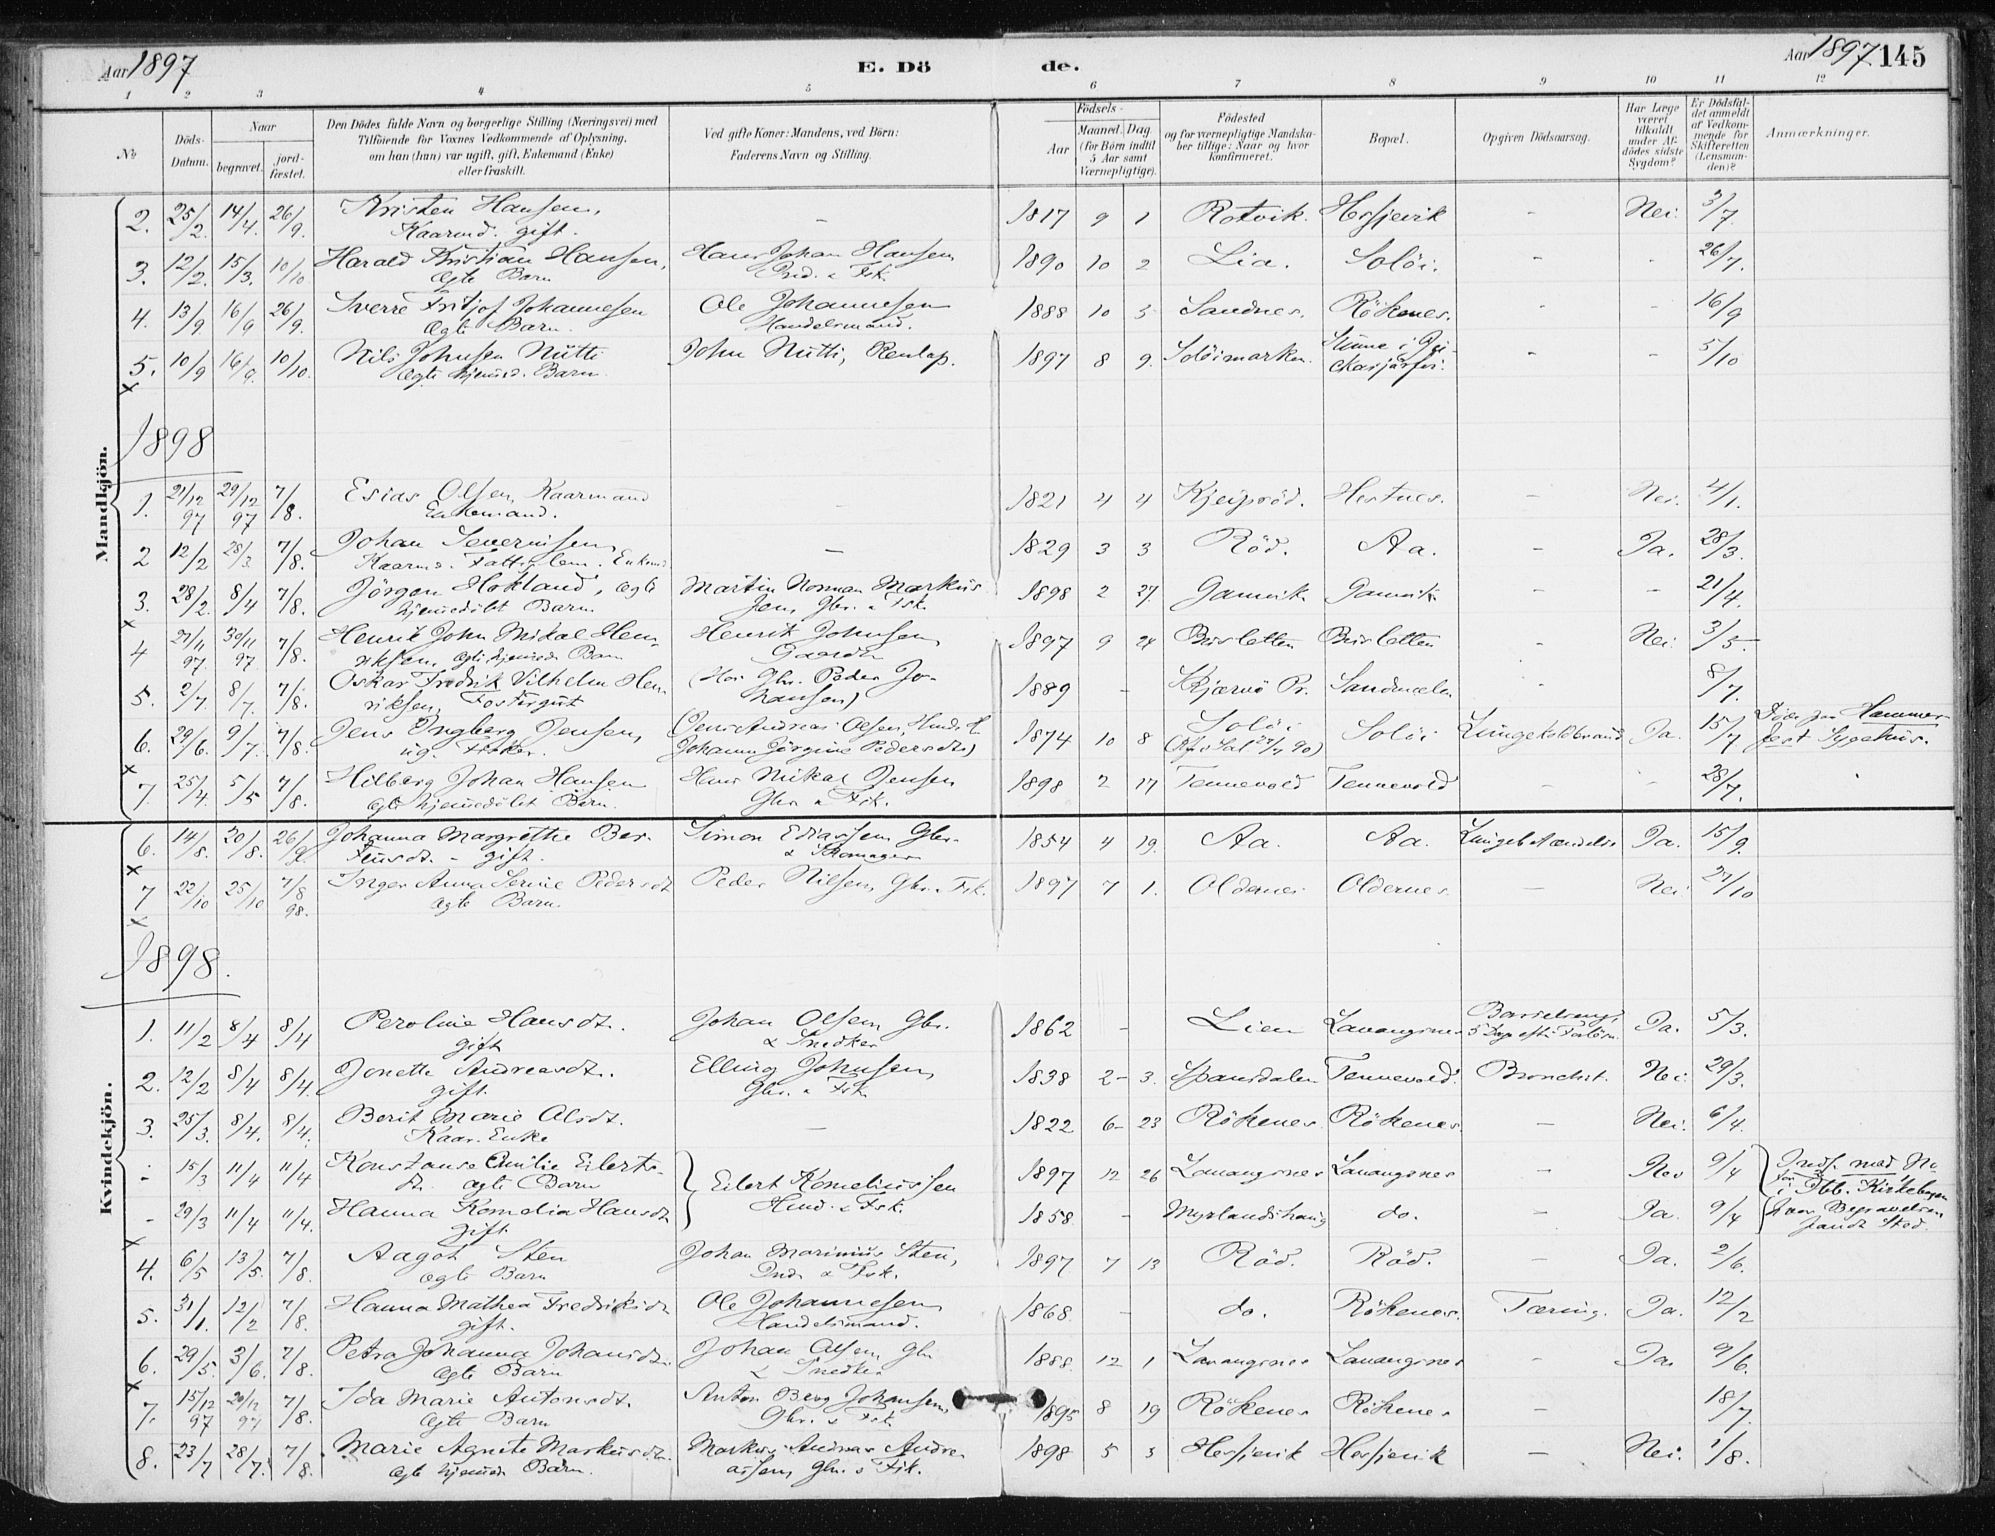 Aar 1897
E. Dö de.
Aar 1897. 145
1 2 3 4 5 6 7 8 9 10 11 12
No
Döds-Datum.
Naar
begravet.
jord-fæstet.
Den Dödes fulde Navn og borgerlige Stilling (Næringsvei) med
Tilföiende for Voxnes Vedkommende af Oplysning,
om han (hun) var ugift, gift, Enkemand (Enke)
eller fraskilt.
Ved gifte Koner: Mandens, ved Börn:
Faderens Navn og Stilling.
Födsels-
Aar
Maaned. Dag.
(for Börn indtil
5 Aar samt
Værnepligtige).
Födested
og for værnepligtige Mandska-
ber tillige: Naar og hvor
konfirmeret.
Bopæl.
Opgiven Dödsaarsag.
Har Læge
været
tilkaldt
under Af-
dödes sidste
Sygdom?
Er Dödsfal-
det anmeldt
af Vedkom-
mende for
Skifteretten
(Lensman-
den)?
Anmærkninger.
Mandkjön.
2. 25/2. 14/4. 26/9. Kristen Hansen, – 1817 9 1 Rotvik. Hesjevik – Nei. 3/7.
Kaarmd. gift.
3. 12/2. 15/3. 10/10 Harald Kristian Hansen, Hans Johan Hansen 1890 10 2 Lia. Solöi. - - 26/7.
Ægte Barn Ind. & Fsk.
4. 13/9 16/9 26/9. Sverre Fritjof Johannesen Ole Johannesen 1888 10 5 Sandnes. Rökenes. - - 16/9
Ægte Barn. Handelsmand.
5. 10/9 16/9. 10/10. Nils Johnsen Nutti John Nutti, Renlap. 1897 8 9. Solöimarken. - - 5/10
Ægte hjemmed. Barn
x
1898
1. 21/12 97 29/12 97 7/8. Esias Olsen, Kaarmand – 1821 4 4 Kjeipröd. Hestnes. – Nei. 4/1.
Enkemand.
2 12/2 28/3 7/8. Johan Severinsen – 1829 3 3 Röd. Aa. – Ja. 28/3.
Kaarmd. Fattiglem. Enkemd
3. 28/2. 8/4 7/8. Jörgen Hokland, ægte Martin Norman Markus 1898 2 27. Gamvik Gamvik – – 21/4.
hjemmedöbt Barn. sen, Gbr. & Fsk.
x
4 21/11 97. 30/11 97. 7/8. Henrik John Mikal Hen- Henrik Johnsen 1897 9 24 Bursletten Bursletten - Nei. 3/5
riksen, ægte hjemmed. Barn Gaardbr
5. 2/7. 8/7. 7/8. Oskar Fredrik Vilhelm Hen (Hos Gbr. Peder Jo- 1889 - Skjærvö Pr. Sandmælen - 8/7.
riksen, Fostergut hansen)
6. 29/6. 9/7. 7/8. Jens Ingberg Jensen, (Jens Andreas Olsen, 1874 10 8 Solöi Solöi Lungekoldbrand Ja. 15/7 Döde paa Hammer
ug. Fisker. Johanna Jörgine Pedersdtr) fest Sygehus.
x
7. 25/4. 5/5 7/8. Hilberg Johan Hansen Hans Mikal Jensen 1898 2 17 Tennevold Tennevold - - 28/7.
ægte hjemmedöbt Barn. Gbr. & Fsk.
Kvindekjön.
6. 14/8. 20/8. 26/9. Johanna Margrethe Ber- Simon Ediassen Gbr. 1854 4 19. Aa. Aa. Lungebetændelse Ja. 15/9.
teusdt. – gift. & Skomager
x
7 22/10 25/10 7/8 98. Inger Anna Serine Pedersdt Peder Nilsen, Gbr. & Fsk. 1897 7 1. Oldernes Oldernes. – Nei 27/10
Ægte Barn.
x
1898.
1. 11/2 8/4 8/4 Peroline Hansdt. Johan Olsen, Gbr. 1862 – Lien Lavangsnes Barselseng, Ja. 5/3.
gift & Snedker 5 Dage efter Forlösn.
2. 12/2 8/4 8/4. Jonette Andreasdt. Elling Johnsen, 1838 2– 3. Spansdalen Tennevold. Bronchit. Nei 29/3.
gift. Gbr. & Fsk.
3. 25/3. 8/4. 8/4. Berit Marie Olsdt. – 1822 6– 23 Rökenes Rökenes. – Nei. 6/4.
Kaar. Enke
- 15/3 11/4 11/4 Konstanse Emilie Eilerts- Eilert Korneliussen 1897 12 26 Lavangsnes Lavangsnes – Nei 9/4 Indf. med No
dt. ægte Barn Hmd. & Fsk. i Ibb. Kirkebogen
- 29/3 11/4 11/4. Hanna Kornelia Hansdt 1858 - Myrlandshaug do. – Ja. 9/4 hvor Begravelsen
gift fandt Sted.
x
4. 6/5 13/5. 7/8. Aagot Sten Johan Marinius Sten, 1897 7 13 Röd. Röd. – Ja. 2/6.
ægte Barn Ind. & Fsk.
5. 31/1. 12/2 7/8. Hanna Mathea Fredriksdt Ole Johannesen 1868. - do. Rökenes. Tæring. Ja. 12/2
gift. Handelsmand.
6. 29/5. 3/6. 7/8. Petra Johanna Johansdt. Johan Olsen, Gbr 1888. 12 1 Lavangsnes Lavangsnes – Ja. 9/6.
ægte Barn & Snedker
x
7. 15/12 97 20/12 97 7/8. Ida Marie Antonsdt. Anton Berg Johansen, 1895 8 19 Rökenes Rökenes – 18/7.
Ægte Barn Gbr. & Fsk.
8. 23/7 28/7. 7/8. Marie Agnete Markusdt. Markus Andreas Andre- 1898 5 3 Hesjevik Hesjevik – Nei. 1/8.
ægte hjemmed. Barn. assen, Gbr. & Fsk.